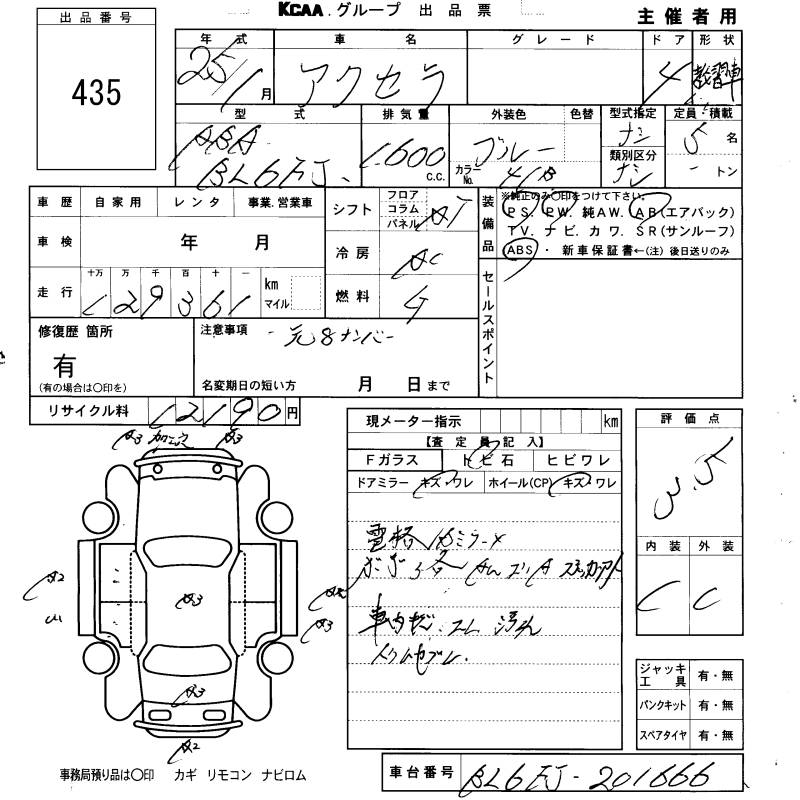 KCAA.グループ 出品票
主催者用
出品番号
435
年式 車名 グレード ドア 形状
25/1月 アクセラ 4 教習車
型式 排気量 外装色 色替 型式指定 定員・積載
ABA BL6FJ 1,600 C.C. ブルー カラーNo. 41B ナシ 5名
類別区分 ナシ - トン
車歴 自家用 レンタ 事業.営業車
車検 年 月
走行 十万 万 千 百 十 一 km マイル
129361
シフト フロア コラム パネル AT
冷房 AC
燃料 G
装備品 ※純正のみ〇印をつけて下さい。
PS. PW. 純AW. AB(エアバック)
TV. ナビ. カワ. SR(サンルーフ)
ABS ・ 新車保証書←(注) 後日送りのみ
セールスポイント
修復歴 箇所
有
(有の場合は〇印を)
注意事項 元8ナンバー
名変期日の短い方 月 日まで
リサイクル料 12190円
現メーター指示 km
【査定員記入】
Fガラス トビ石 ヒビワレ
ドアミラー キズ・ワレ ホイール(CP) キズ・ワレ
評価点
3.5
内装 外装
C C
A3 加工穴 A3
A2
A3
A3
A3
A2
電格
車内
汚れ
ジャッキ工具 有・無
パンクキット 有・無
スペアタイヤ 有・無
事務局預り品は〇印 カギ リモコン ナビロム
車台番号 BL6FJ-201666